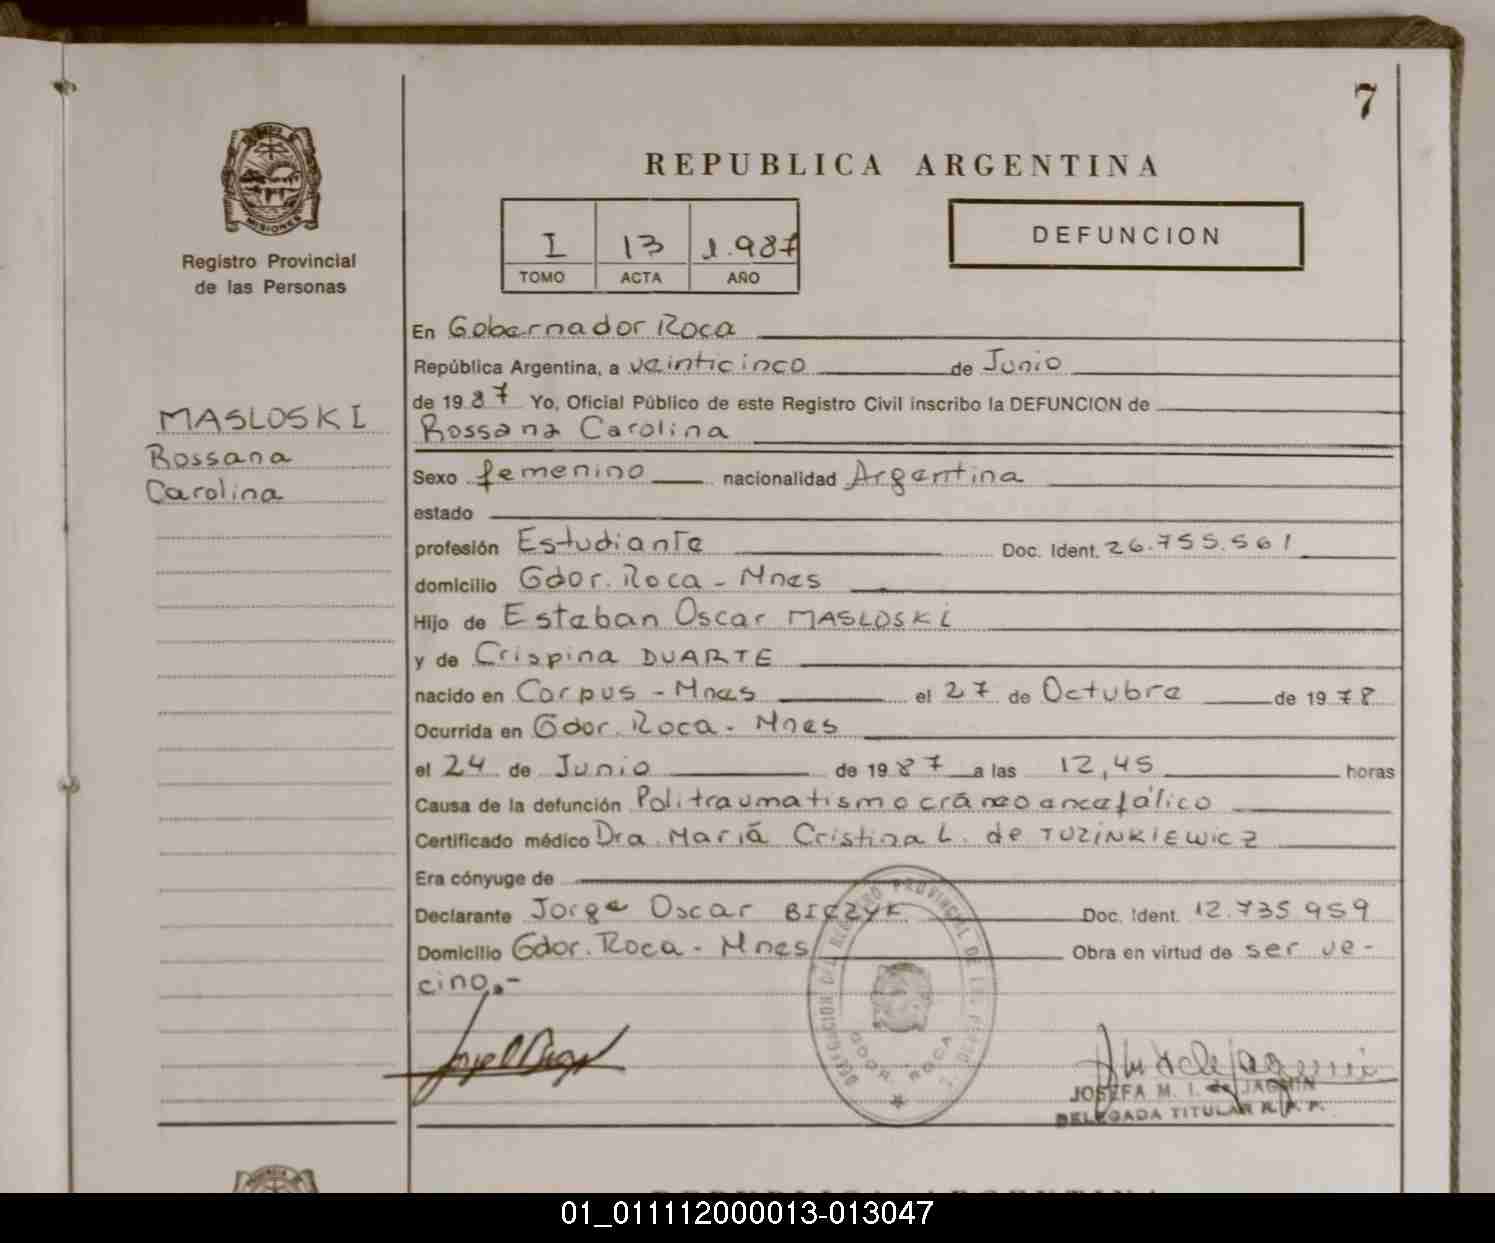 7
MISIONES
Registro Provincial
de las Personas
REPUBLICA ARGENTINA
I 13 1.987
TOMO ACTA AÑO
DEFUNCION
MASLOSKI
Rossana
Carolina
En Gobernador Roca
República Argentina, a veinticinco de Junio
de 1987 Yo, Oficial Público de este Registro Civil inscribo la DEFUNCION de
Rossana Carolina
Sexo femenino nacionalidad Argentina
estado
profesión Estudiante Doc. Ident. 26.755.561
domicilio Gdor. Roca - Mnes
Hijo de Esteban Oscar MASLOSKI
y de Crispina DUARTE
nacido en Corpus - Mnes el 27 de Octubre de 1978
Ocurrida en Gdor. Roca - Mnes
el 24 de Junio de 1987 a las 12,45 horas
Causa de la defunción Politraumatismo cráneo encefálico
Certificado médico Dra. María Cristina L. de TUZINKIEWICZ
Era cónyuge de
Declarante Jorge Oscar Doc. Ident. 12.735.959
Domicilio Gdor. Roca - Mnes Obra en virtud de ser ve-
cino.-
DELEGACION DEL REGISTRO PROVINCIAL DE LAS
GDOR. ROCA
JOSEFA M. I. de JAGMIN
DELEGADA TITULAR R. P. P.
REPUBLICA ARGENTINA
01_011112000013-013047